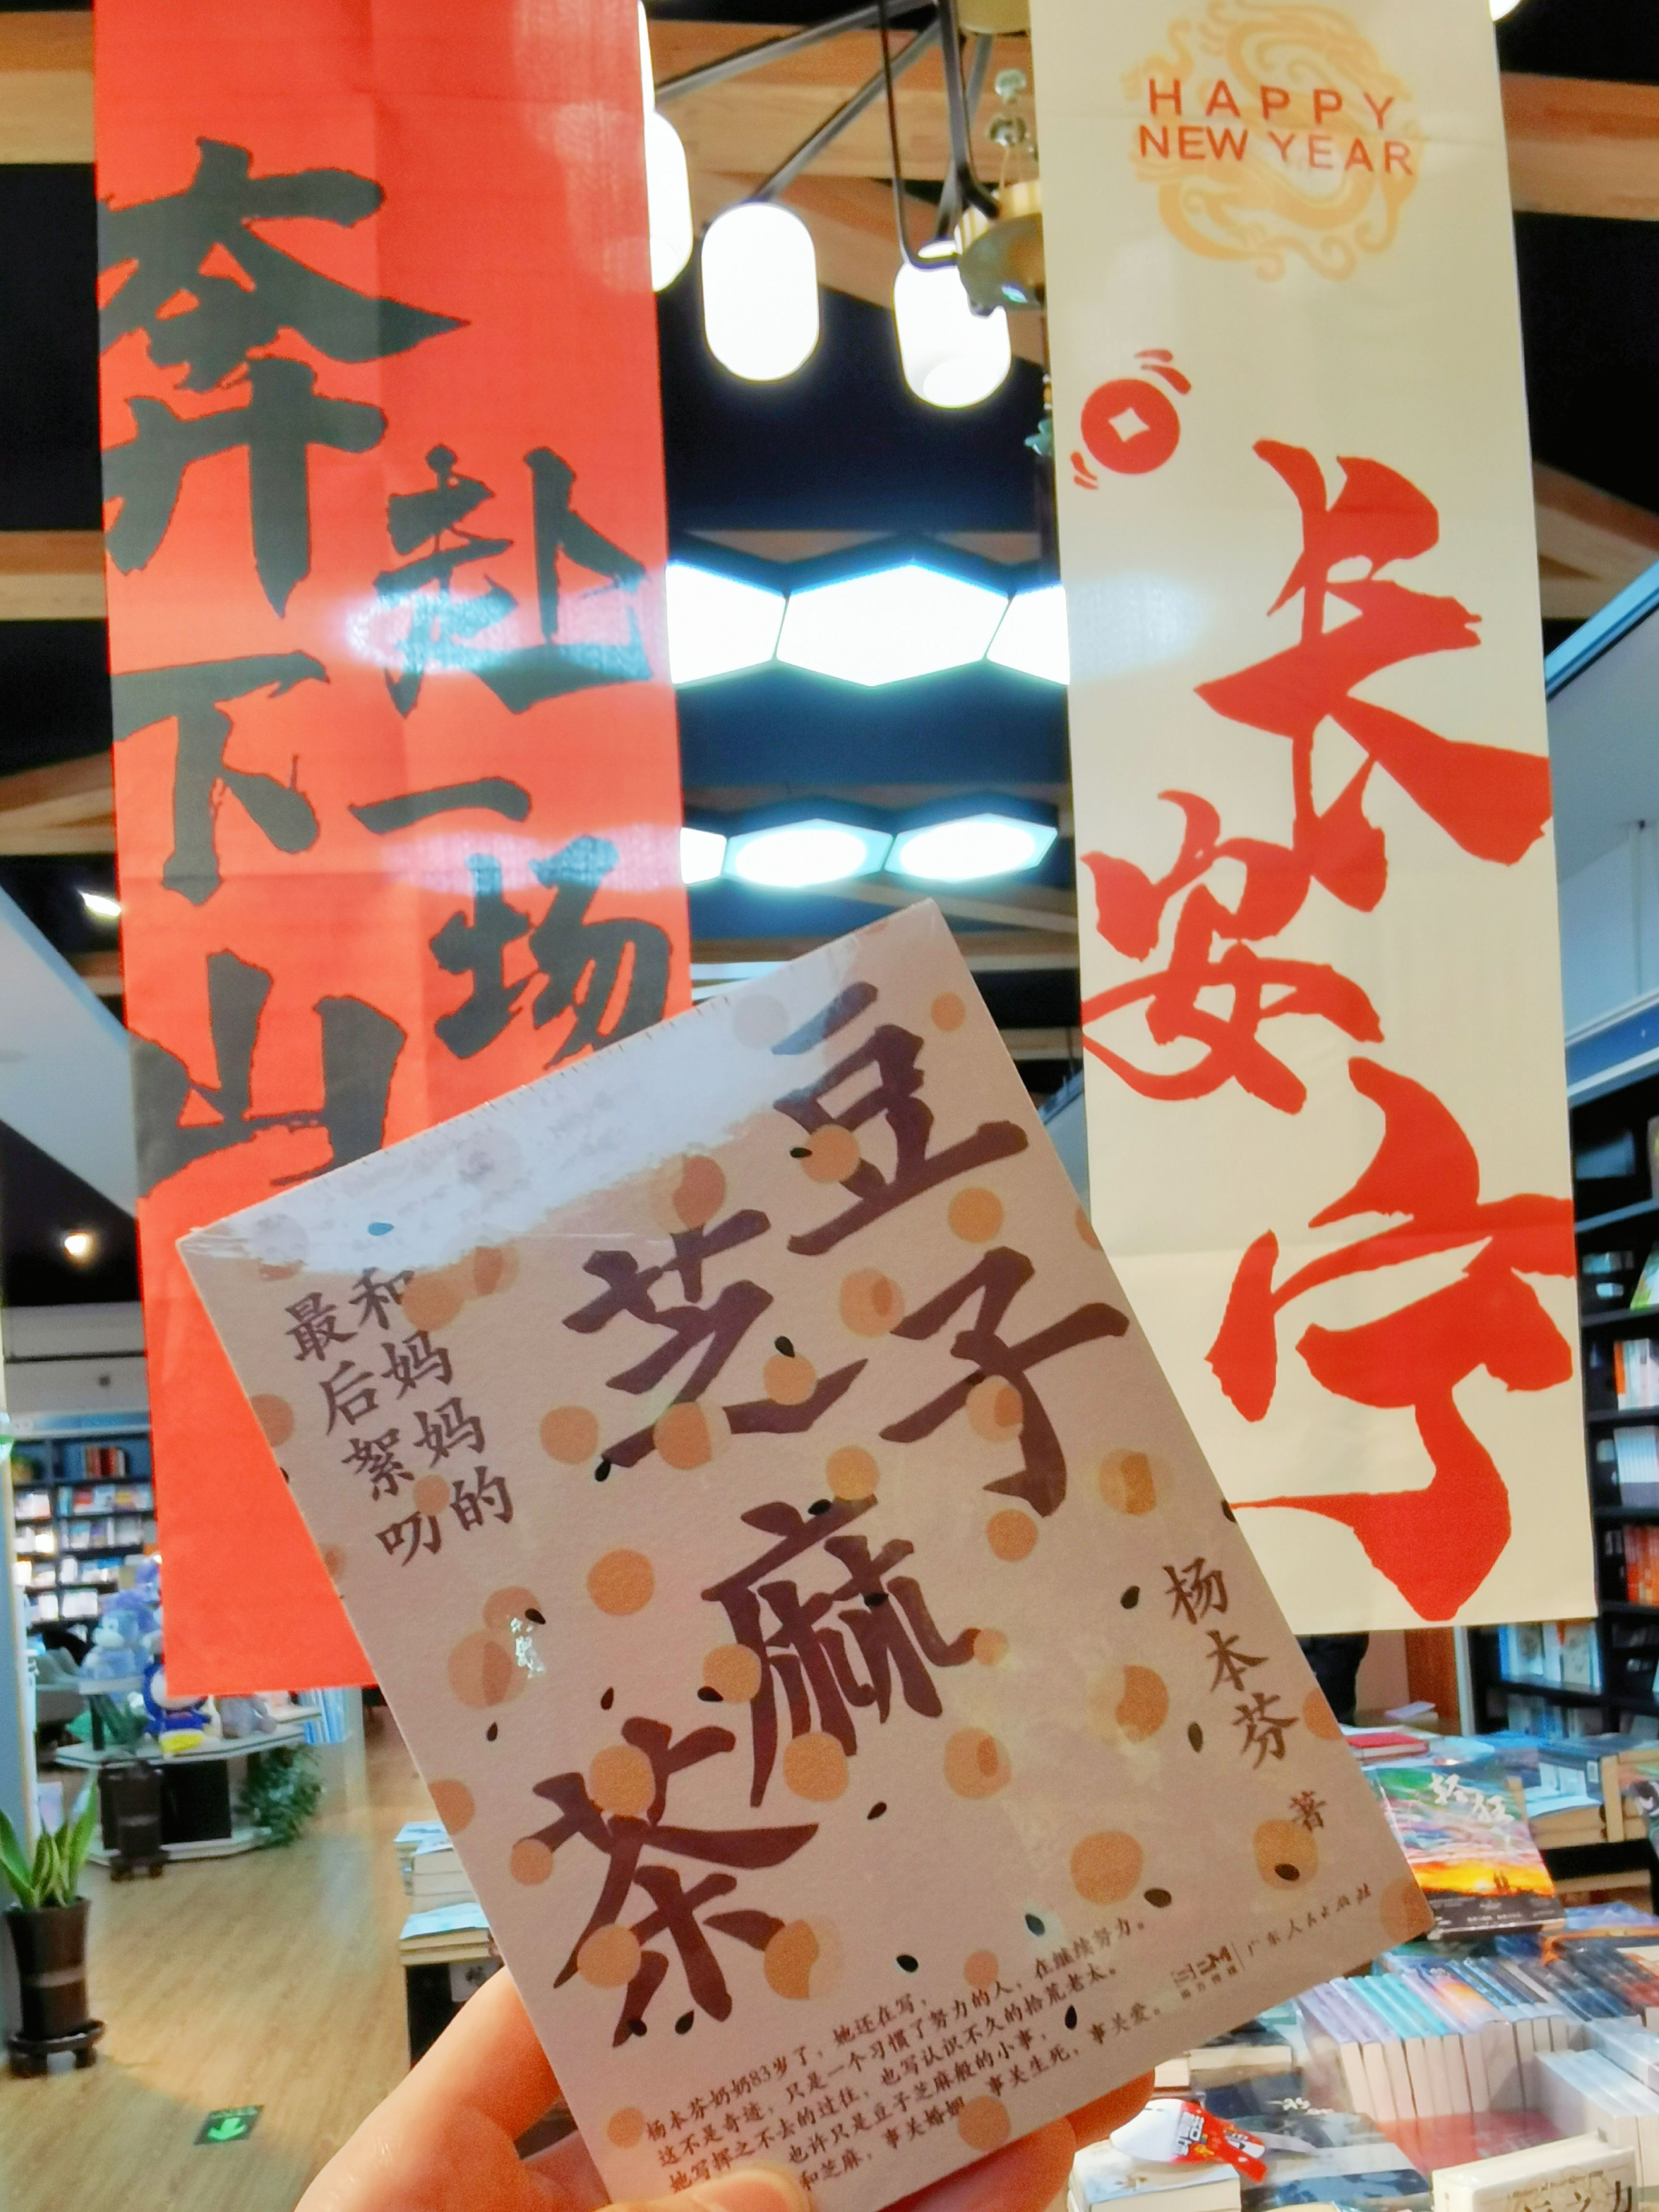 奔下山
赴一场
HAPPY
NEW YEAR
长安宁
豆子
芝麻
茶
和妈妈的
最后絮叨
杨本芬 著
杨本芬奶奶83岁了，她还在写，
这不是奇迹，只是一个习惯了努力的人，在继续努力。
她写挥之不去的过往，也写认识不久的拾荒老太。
也许只是豆子芝麻般的小事，
和芝麻，事关婚姻，事关生死，事关爱。
广东人民出版社